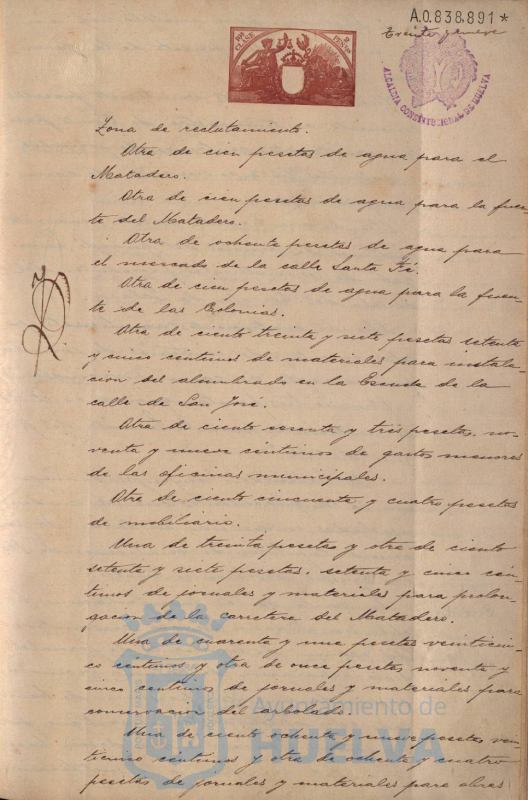 A.0.838.891*
Treinta y nueve
11ª CLASE
2 PESETAS
ALCALDIA CONSTITUCIONAL DE HUELVA
Zona de reclutamiento.
Otra de cien pesetas de agua para el
Matadero.
Otra de cien pesetas de agua para la fuen-
te del Matadero.
Otra de ochenta pesetas de agua para
el mercado de la calle Santa Fé.
Otra de cien pesetas de agua para la fuen-
te de las Colonias.
Otra de ciento treinta y siete pesetas setenta
y cinco centimos de materiales para instala-
cion del alumbrado en la Escuela de la
calle de San José.
Otra de ciento sesenta y tres pesetas, no-
venta y nueve centimos de gastos menores
de las oficinas municipales.
Otra de ciento cincuenta y cuatro pesetas
de mobiliario.
Una de treinta pesetas y otra de ciento
setenta y siete pesetas, setenta y cinco cén-
timos de jornales y materiales para prolon-
gacion de la carretera del Matadero.
Una de cuarenta y una pesetas veinticin-
co centimos y otra de once pesetas noventa y
cinco centimos de jornales y materiales para
conservacion del arbolado.
Una de ciento ochenta y nueve pesetas vein-
ticinco centimos y otra de ochenta y cuatro
pesetas de jornales y materiales para obras
Ayuntamiento de
HUELVA